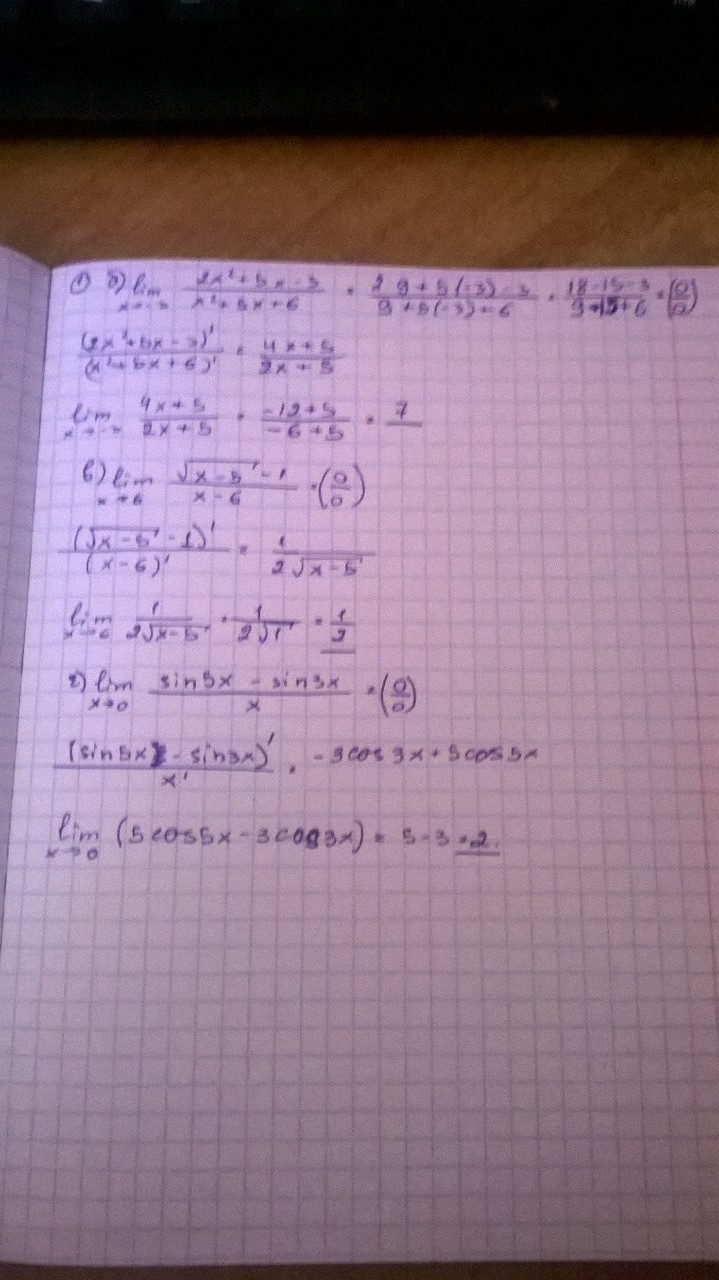 ① б) lim x→-3 (2x²+5x-3)/(x²+5x+6) = (2·9+5(-3)-3)/(9+5(-3)+6) = (18-15-3)/(9-15+6) = (0/0)
(2x²+5x-3)'/(x²+5x+6)' = (4x+5)/(2x+5)
lim x→-3 (4x+5)/(2x+5) = (-12+5)/(-6+5) = 7
в) lim x→6 (√(x-5) -1)/(x-6) = (0/0)
(√(x-5) -1)'/(x-6)' = 1/(2√(x-5))
lim x→6 1/(2√(x-5)) = 1/(2√1) = 1/2
г) lim x→0 (sin5x - sin3x)/x = (0/0)
(sin5x - sin3x)'/x' = -3cos3x+5cos5x
lim x→0 (5cos5x-3cos3x) = 5-3=2.